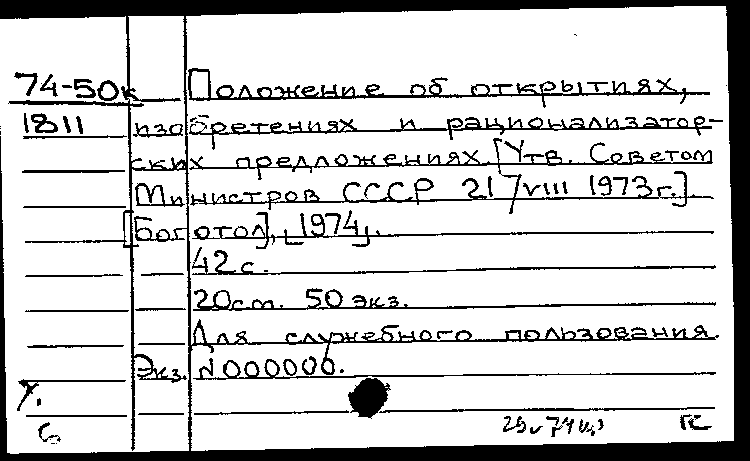 74-50к Положение об открытиях,
1811 изобретениях и рационализатор-
ских предложениях. [Утв. Советом
Министров СССР 21/VIII 1973г.]
[Боготол], 1974.
42 с.
20см. 50 экз.
Для служебного пользования.
Экз. N000000.
у.
6
ГС